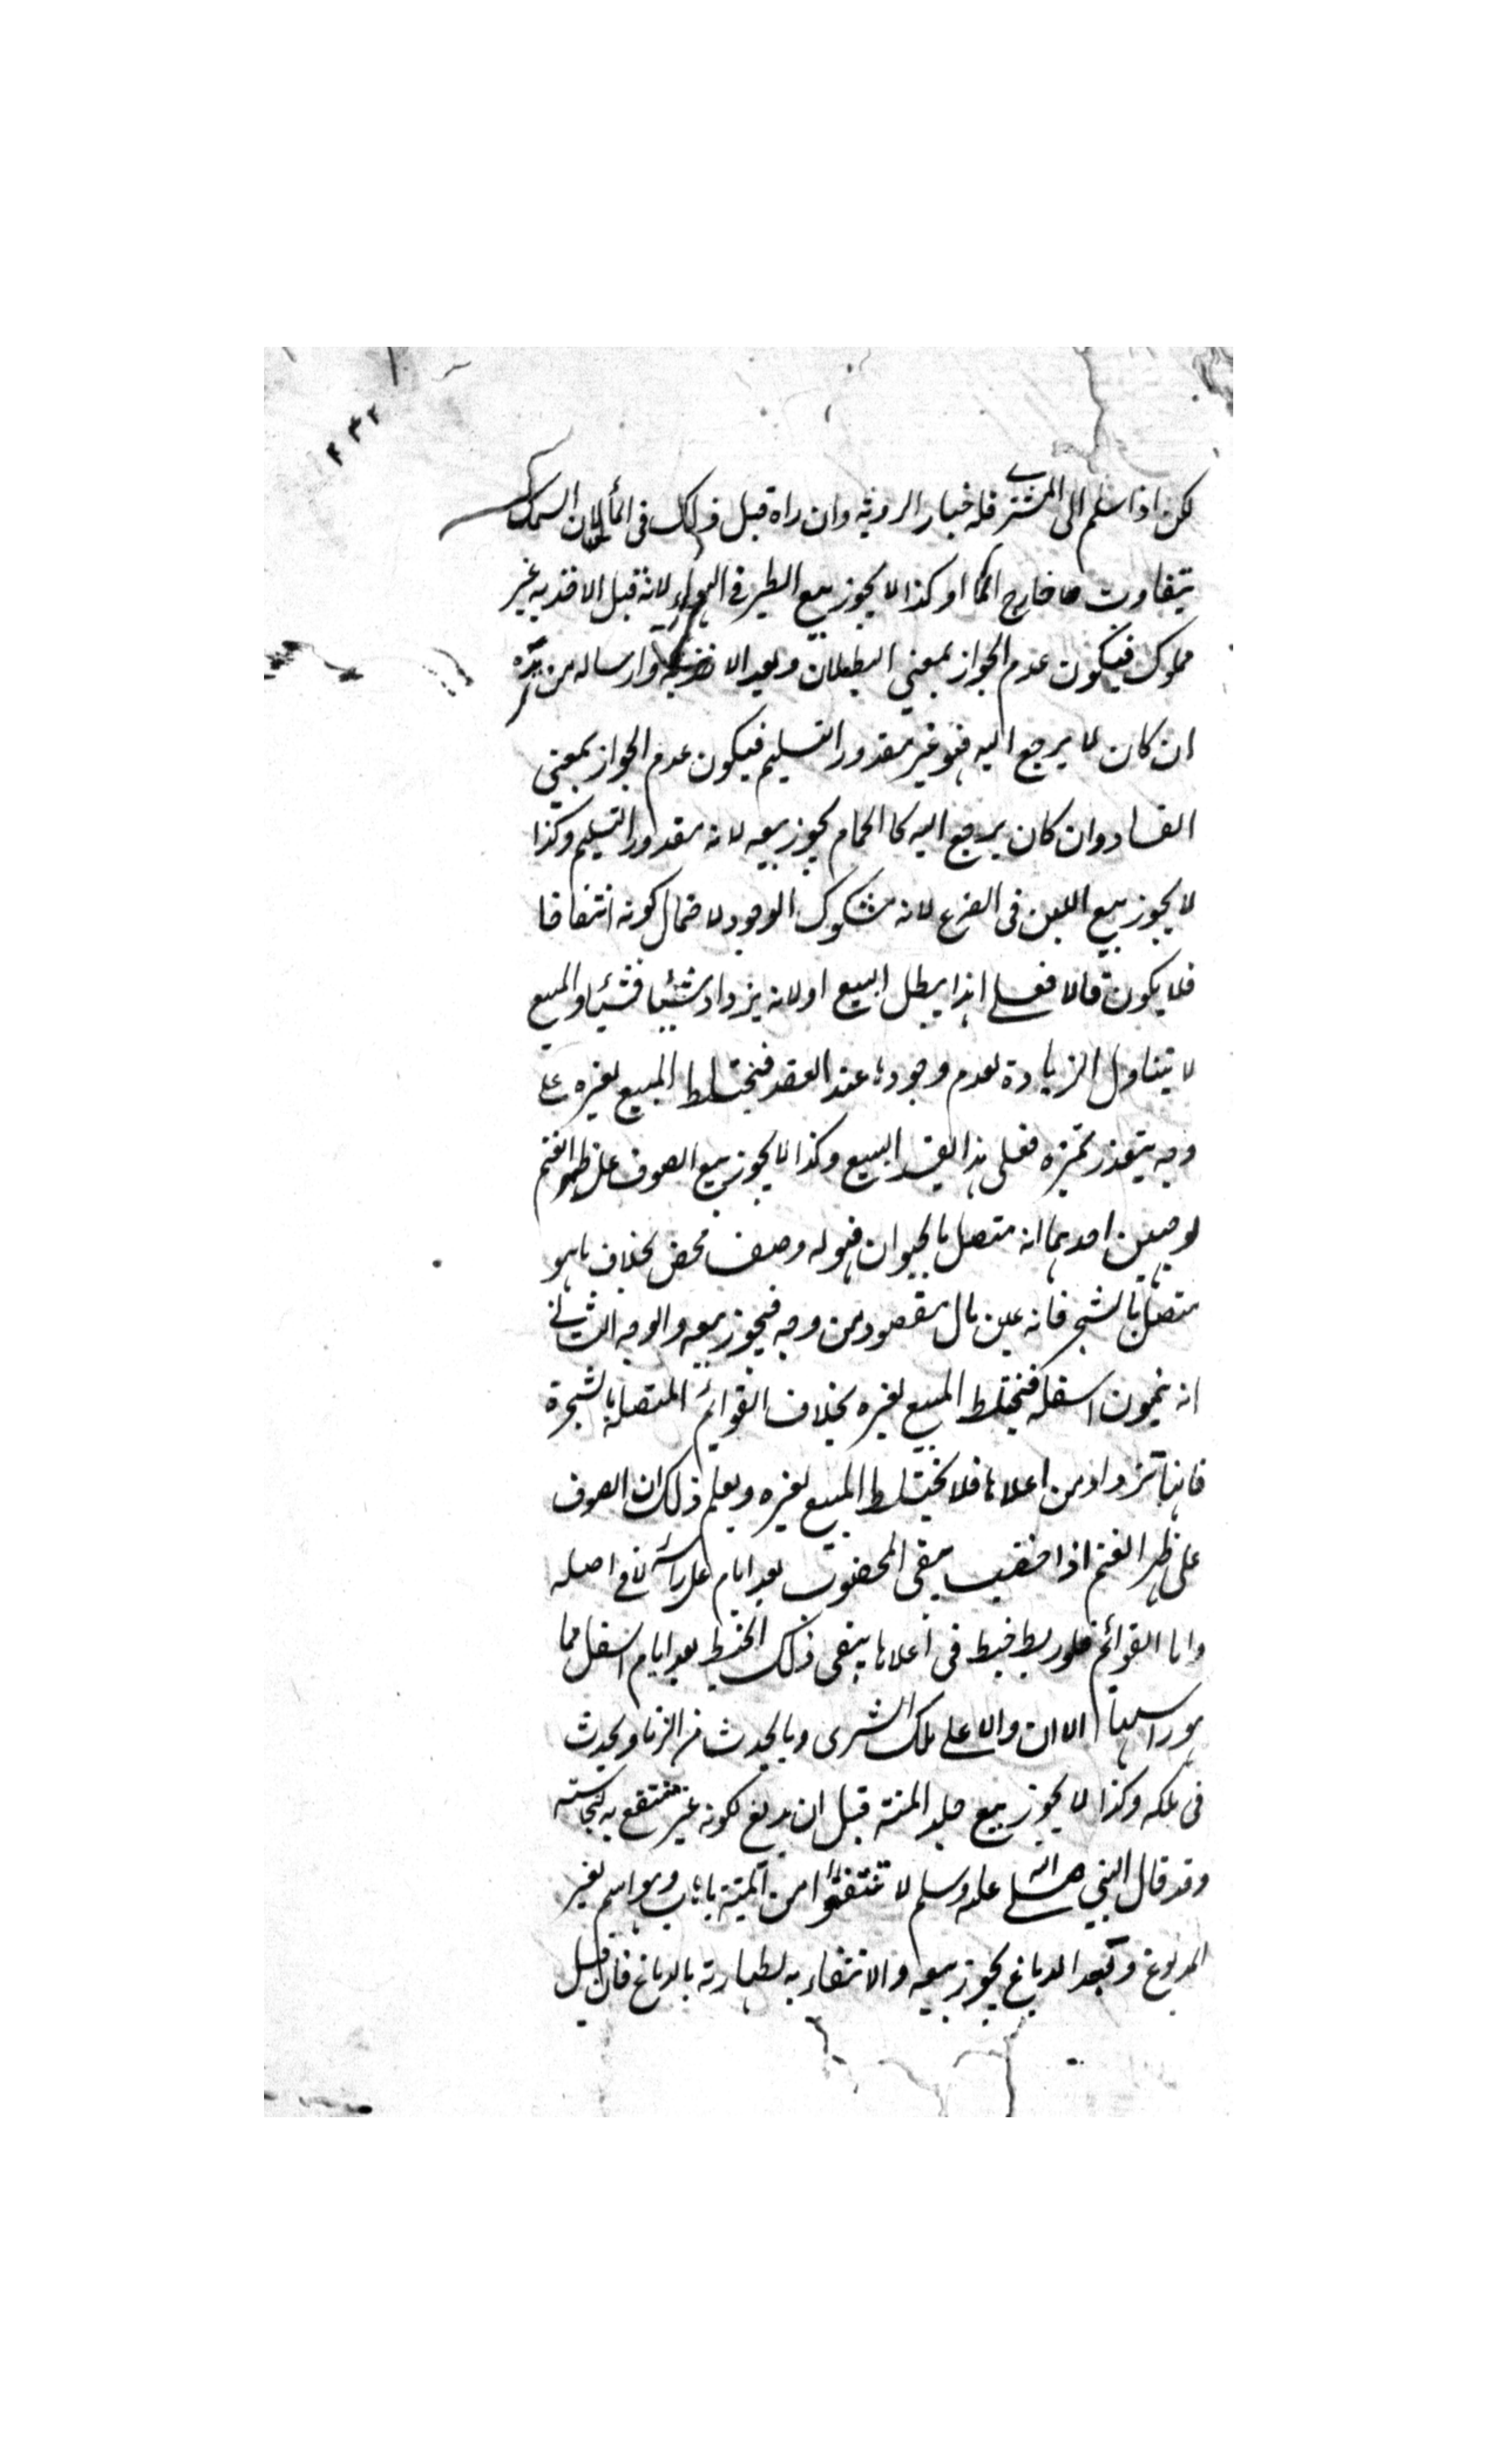 ٢٣٢
لكن اذا سلم الى المشترى فله خيار الروية وان راه قبل ذلك فى الماء لان السمك
يتفاوت خارج الماء وكذا لا يجوز بيع الطير فى الهواء لانه قبل الاخذ به غير
مملوك فيكون عدم الجواز بمعنى البطلان وبعد الاخذ به وارساله من يده
ان كان لا يرجع اليه فهو غير مقدور التسليم فيكون عدم الجواز بمعنى
الفساد وان كان يرجع اليه كالحمام يجوز بيعه لانه مقدور التسليم وكذا
لا يجوز بيع اللبن فى الضرع لانه مشكوك الوجود لاحتمال كونه انتفاخا
فلا يكون مالا فعلى هذا يبطل البيع اولانه يزداد شيئا فشيئا والمبيع
لا يتناول الزيادة لعدم وجودها عند العقد فيختلط المبيع بغيره على
وجه يتعذر تميزه فعلى هذا يفسد البيع وكذا لا يجوز بيع الصوف على ظهر الغنم
لوجهين احدهما انه متصل بالحيوان فهو له وصف محض بخلاف ما هو
متصل بالشجر فانه عين مال مقصود من وجه فيجوز بيعه والوجه الثانى
انه ينمو من اسفله فيختلط المبيع بغيره بخلاف القوائم المتصلة بالشجرة
فانها تزداد من اعلاها فلا يختلط المبيع بغيره ويعلم ذلك ان الصوف
على ظهر الغنم اذا خضب يبقى المخضوب بعد ايام على رأسه لا فى اصله
واما القوائم فلو ربط خيط فى اعلاها يبقى ذلك الخيط بعد ايام اسفل مما
هو رأسها الان والاعلى ملك المشترى وما يحدث من الزيادة يحدث
فى ملكه وكذا لا يجوز بيع جلد الميتة قبل ان يدبغ لكونه غير منتفع به لنجاسته
وقد قال النبى صلى الله عليه وسلم لا تنتفعوا من الميتة باهاب وهو اسم لغير
المدبوغ وبعد الدباغ يجوز بيعه والانتفاع به لطهارته بالدباغ فان قيل